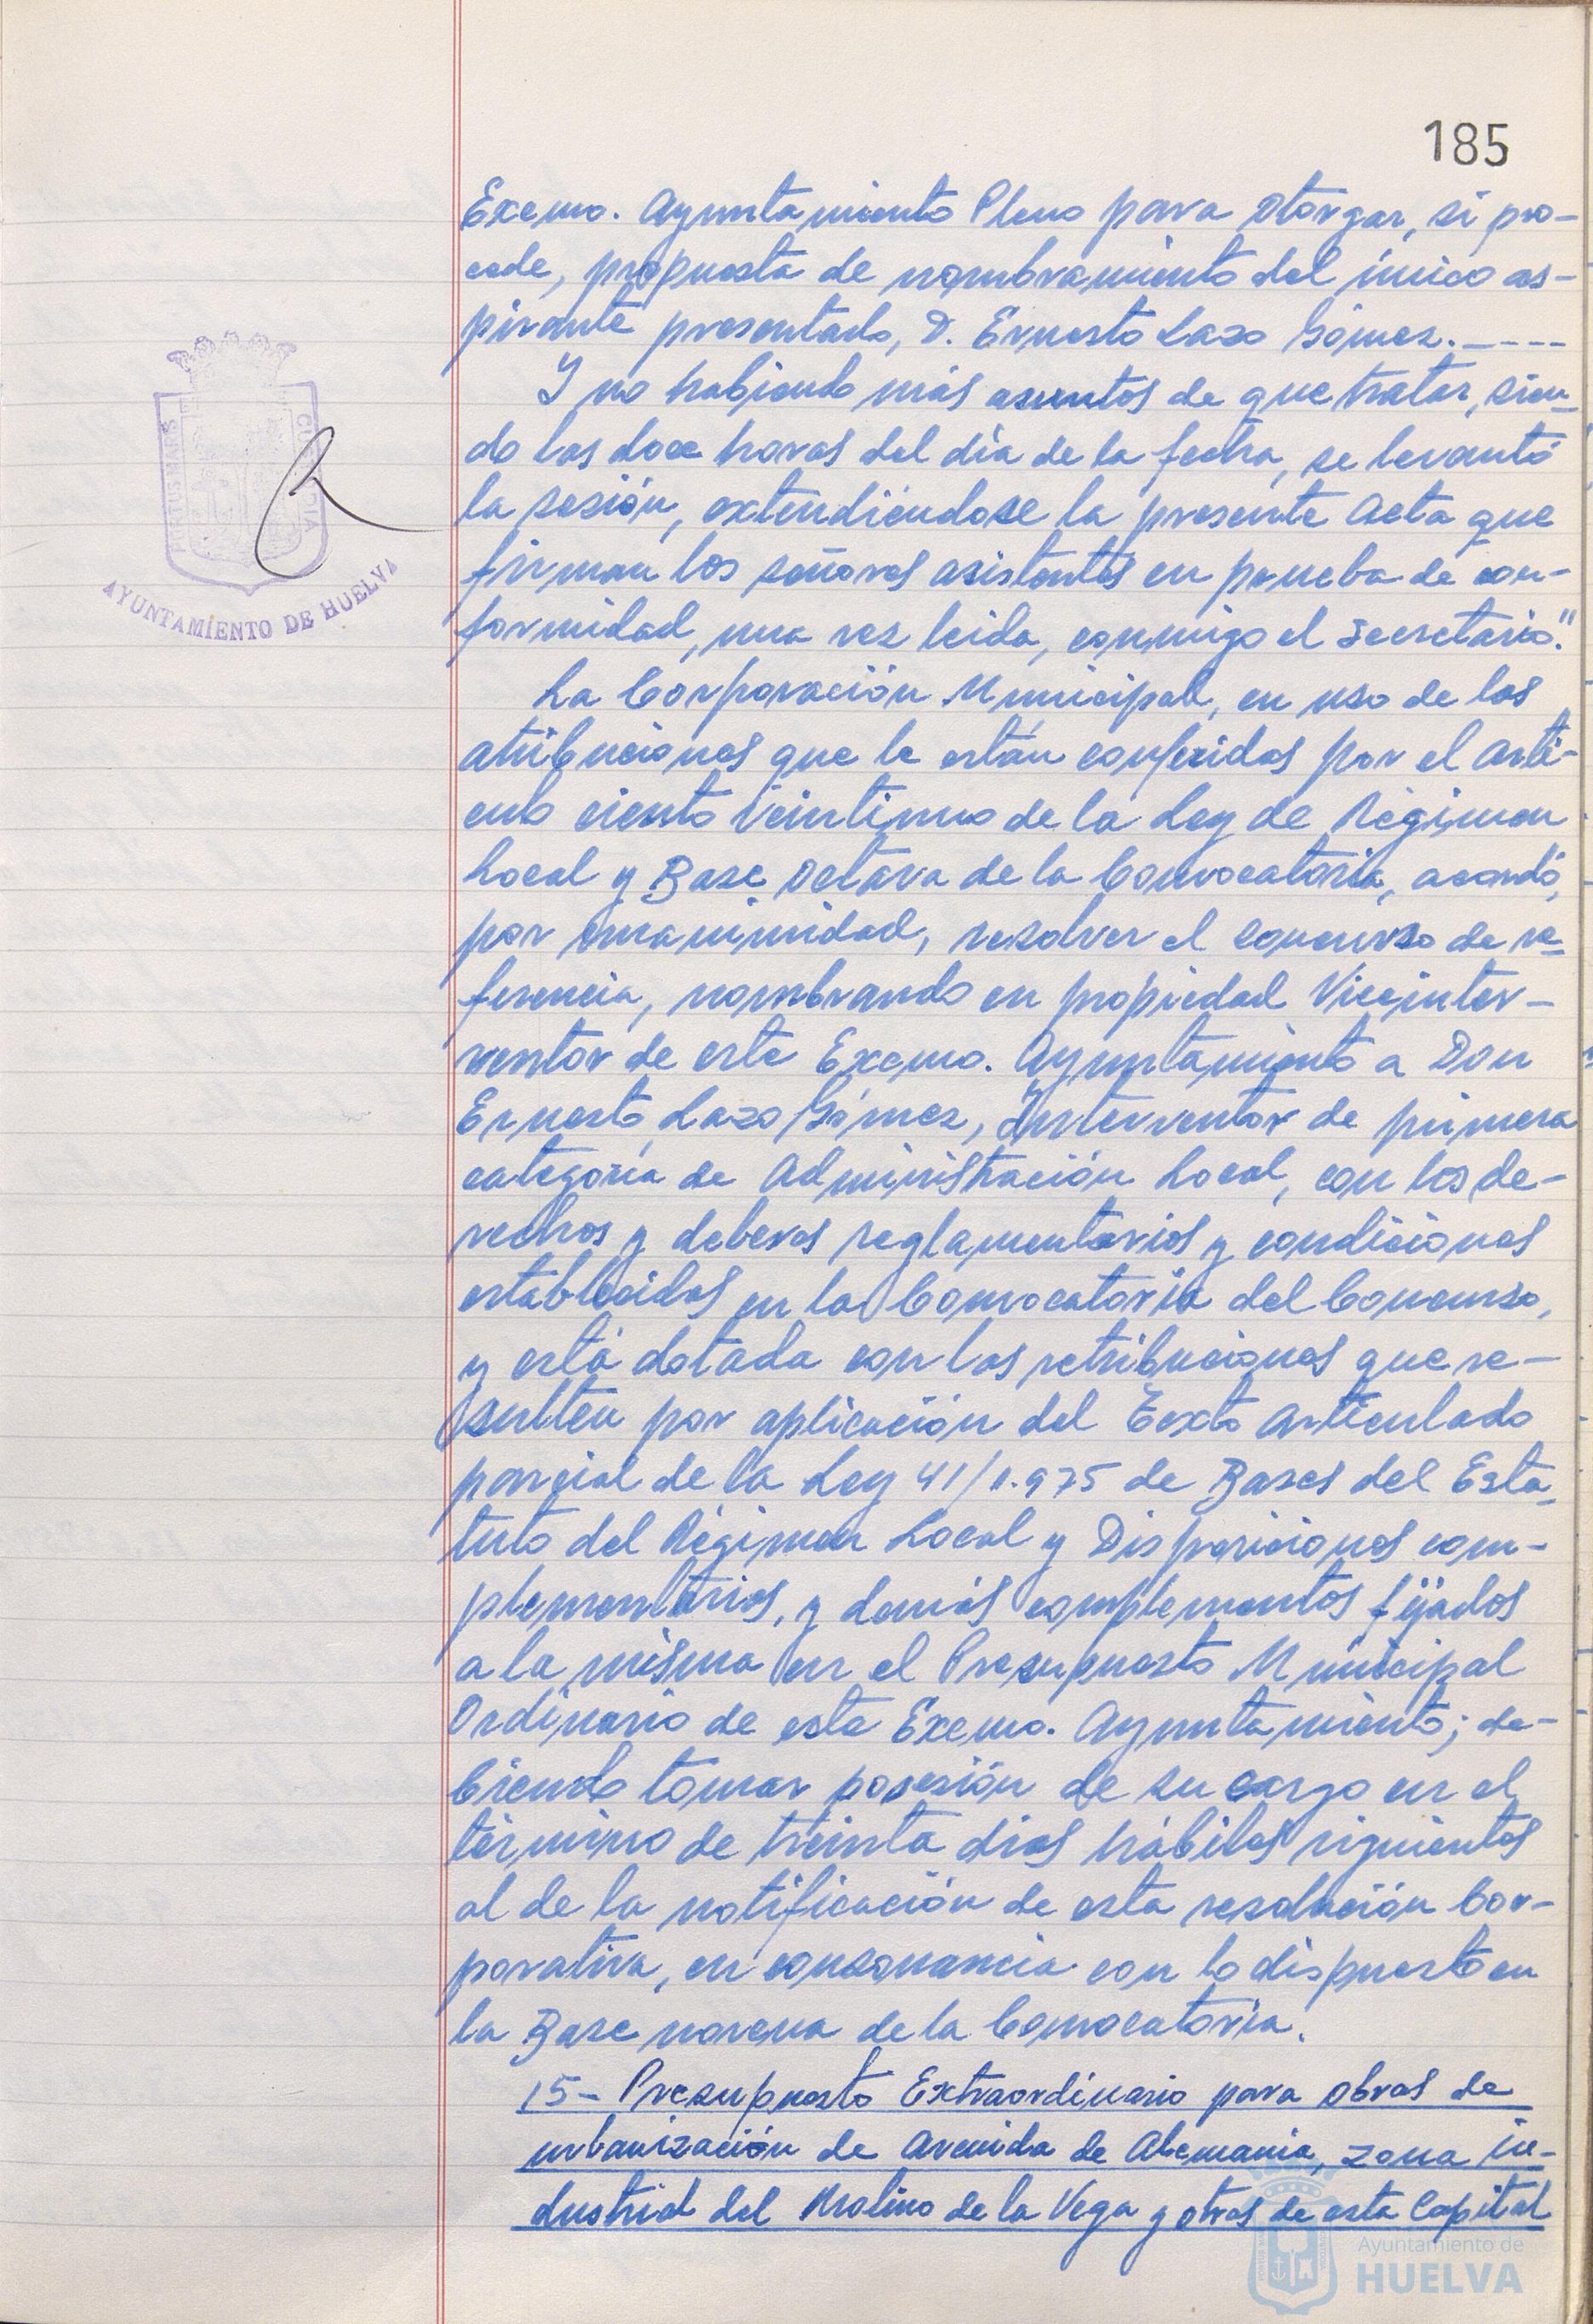 185
Excmo. Ayuntamiento Pleno para otorgar, si pro-
cede, propuesta de nombramiento del único as-
pirante presentado, D. Ernesto Lazo Gómez.----
Y no habiendo más asuntos de que tratar, sien-
do las doce horas del día de la fecha, se levantó
la sesión, extendiéndose la presente Acta que
firman los señores asistentes en prueba de con-
formidad, una vez leida, conmigo el Secretario."
La Corporación Municipal, en uso de las
atribuciones que le están conferidas por el artí-
culo ciento veintiuno de la Ley de Régimen
Local y Base Octava de la Convocatoria, acordó,
por unanimidad, resolver el concurso de re-
ferencia, nombrando en propiedad Viceinter-
ventor de este Excmo. Ayuntamiento a Don
Ernesto Lazo Gómez, Interventor de primera
categoría de Administración Local, con los de-
rechos y deberes reglamentarios y condiciones
establecidas en la Convocatoria del Concurso,
y está dotada con las retribuciones que re-
sulten por aplicación del Texto articulado
parcial de la Ley 41/1.975 de Bases del Esta-
tuto del Régimen Local y Disposiciones com-
plementarias, y demás complementos fijados
a la misma en el Presupuesto Municipal
Ordinario de este Excmo. Ayuntamiento; de-
biendo tomar posesión de su cargo en el
término de treinta días hábiles siguientes
al de la notificación de esta resolución Cor-
porativa, en consonancia con lo dispuesto en
la Base novena de la Convocatoria.
15- Presupuesto Extraordinario para obras de
urbanización de Avenida de Alemania, zona in-
dustrial del Molino de la Vega y otras de esta Capital
PORTUS MARIS
CUSTODIA
AYUNTAMIENTO DE HUELVA
Ayuntamiento de
HUELVA